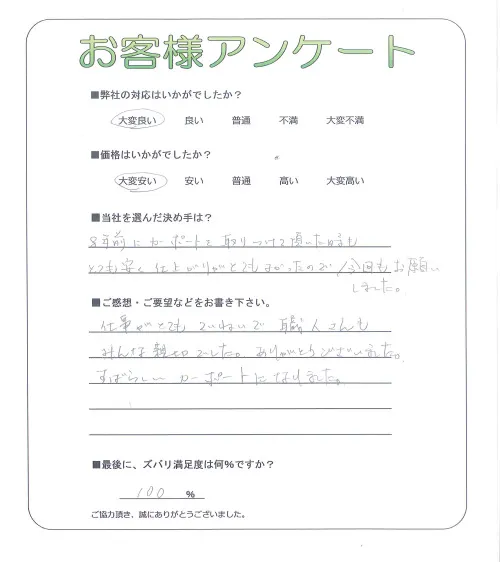 お客様アンケート
■弊社の対応はいかがでしたか？
大変良い 良い 普通 不満 大変不満
■価格はいかがでしたか？
大変安い 安い 普通 高い 大変高い
■当社を選んだ決め手は？
8年前にカーポートを取りつけて頂いた時も
とても安く仕上がりがとてもよかったので今回もお願い
しました。
■ご感想・ご要望などをお書き下さい。
仕事がとてもていねいで職人さんも
みんな親切でした。ありがとうございました。
すばらしいカーポートになりました。
■最後に、ズバリ満足度は何％ですか？
100 %
ご協力頂き、誠にありがとうございました。